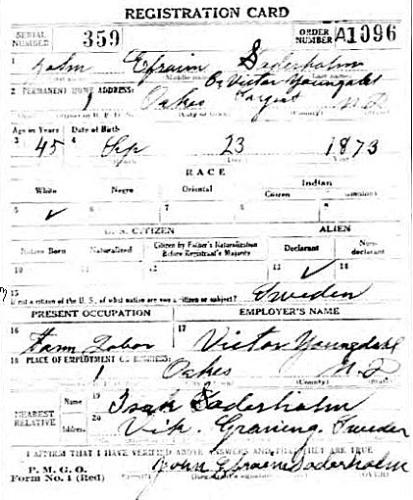 REGISTRATION CARD
SERIAL NUMBER 359 ORDER NUMBER A1096
1 John Efraim Soderholm
c/o Victor Youngdahl
2 PERMANENT HOME ADDRESS:
1 Oakes Sargent N D
Age in Years Date of Birth
3 45 4 Sep 23 1873
RACE
White Negro Oriental Indian
Citizen
5 ✓ 6 7 8 9
U. S. CITIZEN ALIEN
Native Born Naturalized Citizen by Father's Naturalization Before Registrant's Majority Declarant Non-declarant
10 11 12 13 ✓ 14
15 If not a citizen of the U. S., of what nation are you a citizen or subject? Sweden
PRESENT OCCUPATION EMPLOYER'S NAME
16 Farm Labor 17 Victor Youngdahl
18 PLACE OF EMPLOYMENT OR BUSINESS:
1 Oakes N D
NEAREST RELATIVE Name 19 Isak Soderholm
Address 20 Vik. Graning. Sweden
I AFFIRM THAT I HAVE VERIFIED ABOVE ANSWERS AND THAT THEY ARE TRUE
P. M. G. O.
Form No. 1 (Red) John Efraim Soderholm